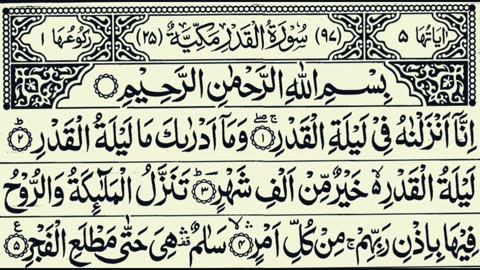 اٰيَاتُهَا ۵ (۹۷) سُوْرَةُ الْقَدْرِ مَكِّيَّةٌ (۲۵) رُكُوْعُهَا ۱
بِسْمِ اللّٰهِ الرَّحْمٰنِ الرَّحِيْمِ
اِنَّاۤ اَنْزَلْنٰهُ فِیْ لَيْلَةِ الْقَدْرِ ۚۖ ﴿۱﴾ وَمَاۤ اَدْرٰىكَ مَا لَيْلَةُ الْقَدْرِ ؕ ﴿۲﴾
لَيْلَةُ الْقَدْرِ ۙ خَيْرٌ مِّنْ اَلْفِ شَهْرٍ ؕ ﴿۳﴾ تَنَزَّلُ الْمَلٰٓئِكَةُ وَالرُّوْحُ
فِيْهَا بِاِذْنِ رَبِّهِمْ ۚ مِنْ كُلِّ اَمْرٍ ۙۛ ﴿۴﴾ سَلٰمٌ ۛ هِیَ حَتّٰى مَطْلَعِ الْفَجْرِ ﴿۵﴾ ع